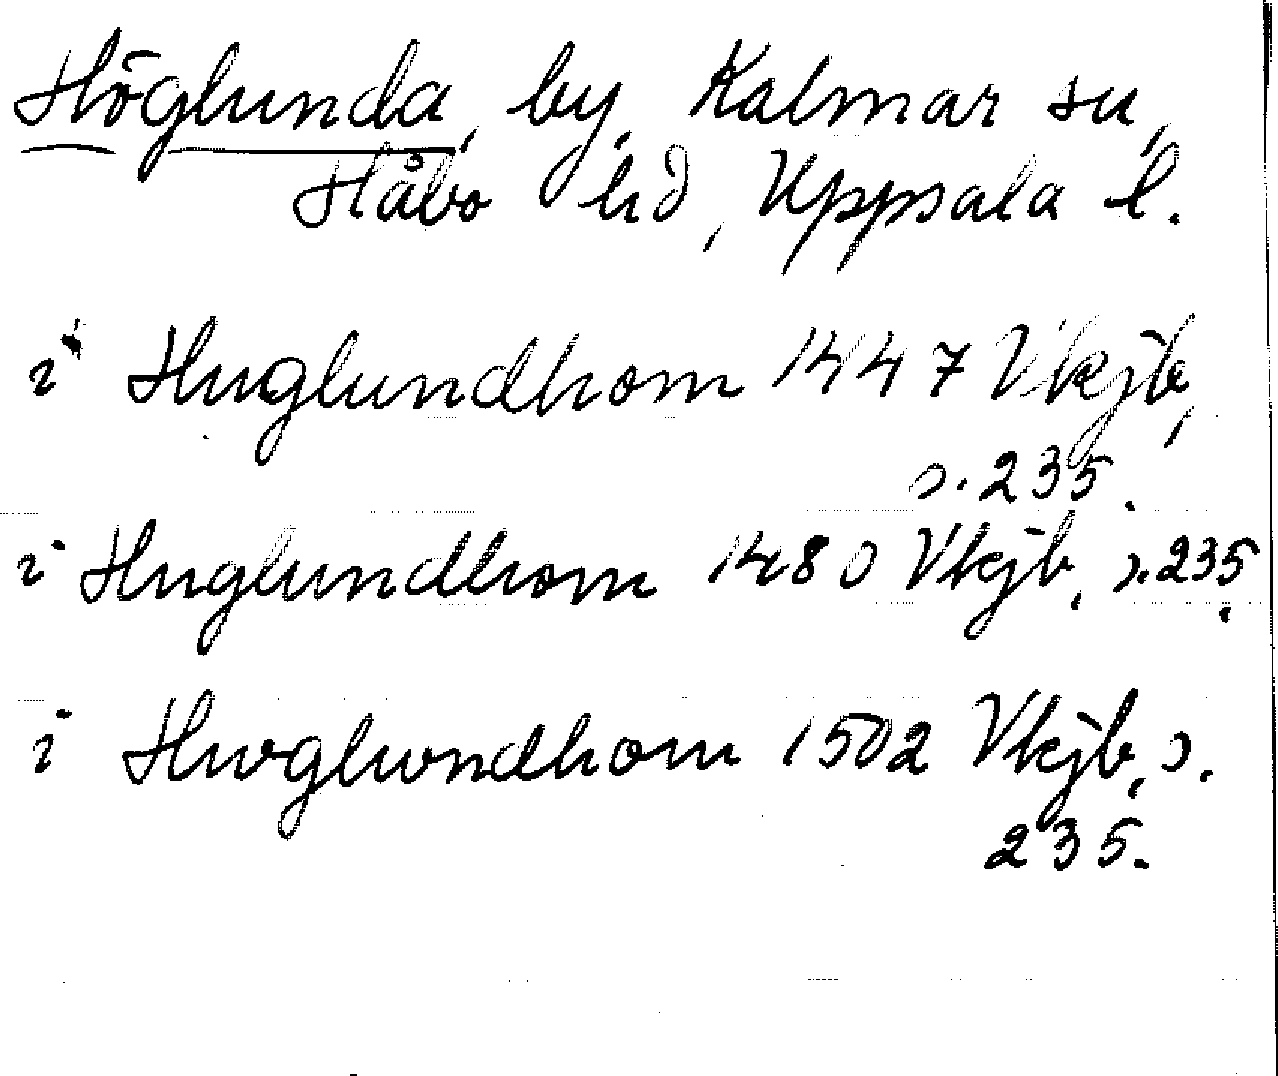 Höglunda, by, Kalmar sn,
Håbo hd, Uppsala l.
i Huglundhom 1447 Vkjb,
s. 235.
i Huglundhom 1480 Vkjb, s. 235.
i Hwglwndhom 1502 Vkjb, s.
235.